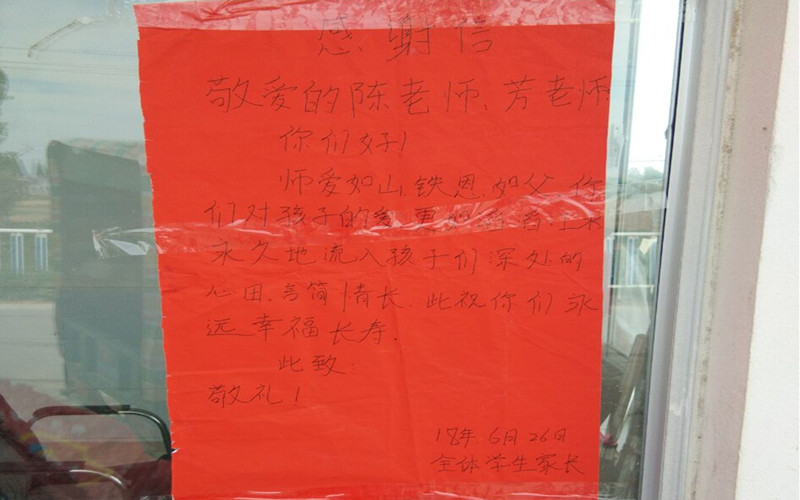 感谢信
敬爱的陈老师、芳老师
你们好！
师爱如山，铁恩如父，你
们对孩子的爱更如
永久地流入孩子们深处的
心田，言简情长，此祝你们永
远幸福长寿.
此致
敬礼！
18年6月26日
全体学生家长